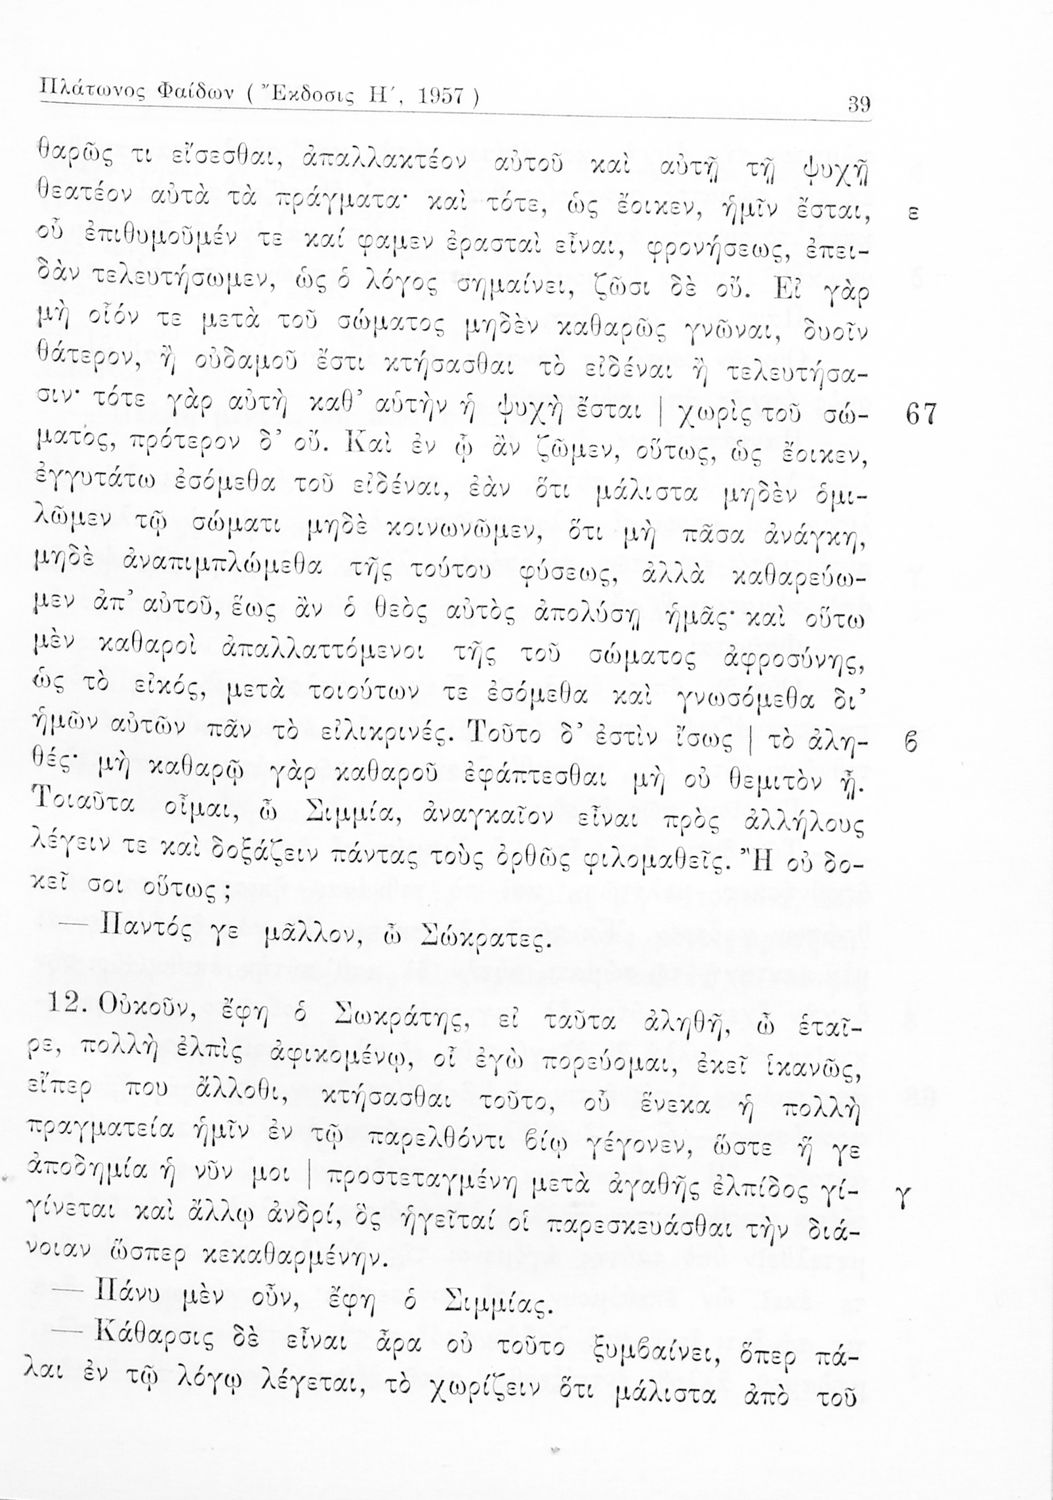 Πλάτωνος Φαίδων ( Ἔκδοσις Η΄, 1957 ) 39
θαρῶς τι εἴσεσθαι, ἀπαλλακτέον αὐτοῦ καὶ αὐτῇ τῇ ψυχῇ
θεατέον αὐτὰ τὰ πράγματα· καὶ τότε, ὡς ἔοικεν, ἡμῖν ἔσται, ε
οὗ ἐπιθυμοῦμέν τε καί φαμεν ἐρασταὶ εἶναι, φρονήσεως, ἐπει-
δὰν τελευτήσωμεν, ὡς ὁ λόγος σημαίνει, ζῶσι δὲ οὔ. Εἰ γὰρ
μὴ οἷόν τε μετὰ τοῦ σώματος μηδὲν καθαρῶς γνῶναι, δυοῖν
θάτερον, ἢ οὐδαμοῦ ἔστι κτήσασθαι τὸ εἰδέναι ἢ τελευτήσα-
σιν· τότε γὰρ αὐτὴ καθ' αὑτὴν ἡ ψυχὴ ἔσται | χωρὶς τοῦ σώ- 67
ματος, πρότερον δ' οὔ. Καὶ ἐν ᾧ ἂν ζῶμεν, οὕτως, ὡς ἔοικεν,
ἐγγυτάτω ἐσόμεθα τοῦ εἰδέναι, ἐὰν ὅτι μάλιστα μηδὲν ὁμι-
λῶμεν τῷ σώματι μηδὲ κοινωνῶμεν, ὅτι μὴ πᾶσα ἀνάγκη,
μηδὲ ἀναπιμπλώμεθα τῆς τούτου φύσεως, ἀλλὰ καθαρεύω-
μεν ἀπ' αὐτοῦ, ἕως ἂν ὁ θεὸς αὐτὸς ἀπολύσῃ ἡμᾶς· καὶ οὕτω
μὲν καθαροὶ ἀπαλλαττόμενοι τῆς τοῦ σώματος ἀφροσύνης,
ὡς τὸ εἰκός, μετὰ τοιούτων τε ἐσόμεθα καὶ γνωσόμεθα δι'
ἡμῶν αὐτῶν πᾶν τὸ εἰλικρινές. Τοῦτο δ' ἐστὶν ἴσως | τὸ ἀλη- ϐ
θές· μὴ καθαρῷ γὰρ καθαροῦ ἐφάπτεσθαι μὴ οὐ θεμιτὸν ᾖ.
Τοιαῦτα οἶμαι, ὦ Σιμμία, ἀναγκαῖον εἶναι πρὸς ἀλλήλους
λέγειν τε καὶ δοξάζειν πάντας τοὺς ὀρθῶς φιλομαθεῖς. Ἢ οὐ δο-
κεῖ σοι οὕτως ;
— Παντός γε μᾶλλον, ὦ Σώκρατες.
12. Οὐκοῦν, ἔφη ὁ Σωκράτης, εἰ ταῦτα ἀληθῆ, ὦ ἑταῖ-
ρε, πολλὴ ἐλπὶς ἀφικομένῳ, οἷ ἐγὼ πορεύομαι, ἐκεῖ ἱκανῶς,
εἴπερ που ἄλλοθι, κτήσασθαι τοῦτο, οὗ ἕνεκα ἡ πολλὴ
πραγματεία ἡμῖν ἐν τῷ παρελθόντι ϐίῳ γέγονεν, ὥστε ἥ γε
ἀποδημία ἡ νῦν μοι | προστεταγμένη μετὰ ἀγαθῆς ἐλπίδος γί- γ
γίνεται καὶ ἄλλῳ ἀνδρί, ὃς ἡγεῖταί οἱ παρεσκευάσθαι τὴν διά-
νοιαν ὥσπερ κεκαθαρμένην.
— Πάνυ μὲν οὖν, ἔφη ὁ Σιμμίας.
— Κάθαρσις δὲ εἶναι ἆρα οὐ τοῦτο ξυμϐαίνει, ὅπερ πά-
λαι ἐν τῷ λόγῳ λέγεται, τὸ χωρίζειν ὅτι μάλιστα ἀπὸ τοῦ